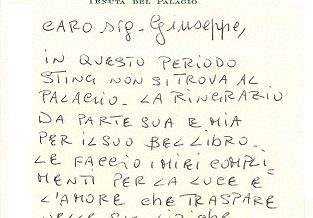 TENUTA DEL PALAGIO
CARO SIG. GIUSEPPE,
IN QUESTO PERIODO
STING NON SI TROVA AL
PALAGIO. LA RINGRAZIO
DA PARTE SUA E MIA
PER IL SUO BEL LIBRO.
LE FACCIO I MIEI COMPLI-
MENTI PER LA LUCE E
L'AMORE CHE TRASPARE
NELLE SUE LIRICHE